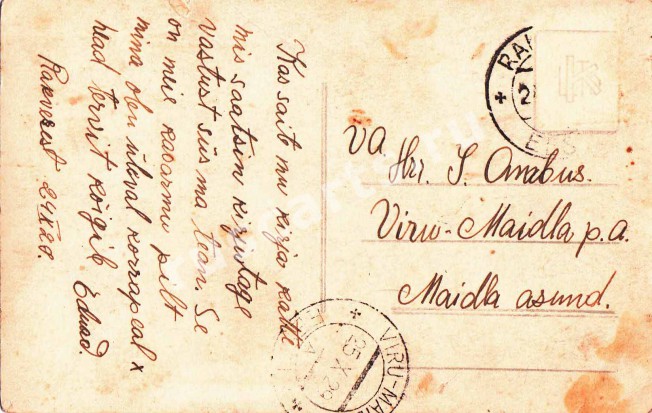 Kas sait mu kirja kätte
mis saatsin kirjutage
vastust siis ma tean. Se
on meie kasarmu pilt
mina olen üleval korra peal x
head tervit kõigile Eduard.
Rakverest 24 X 29.
VA
Hrr. J.
Viru-Maidla p.a.
Maidla asund.
RAK
EES
VIRU-MAI
25 X 29
EESTI